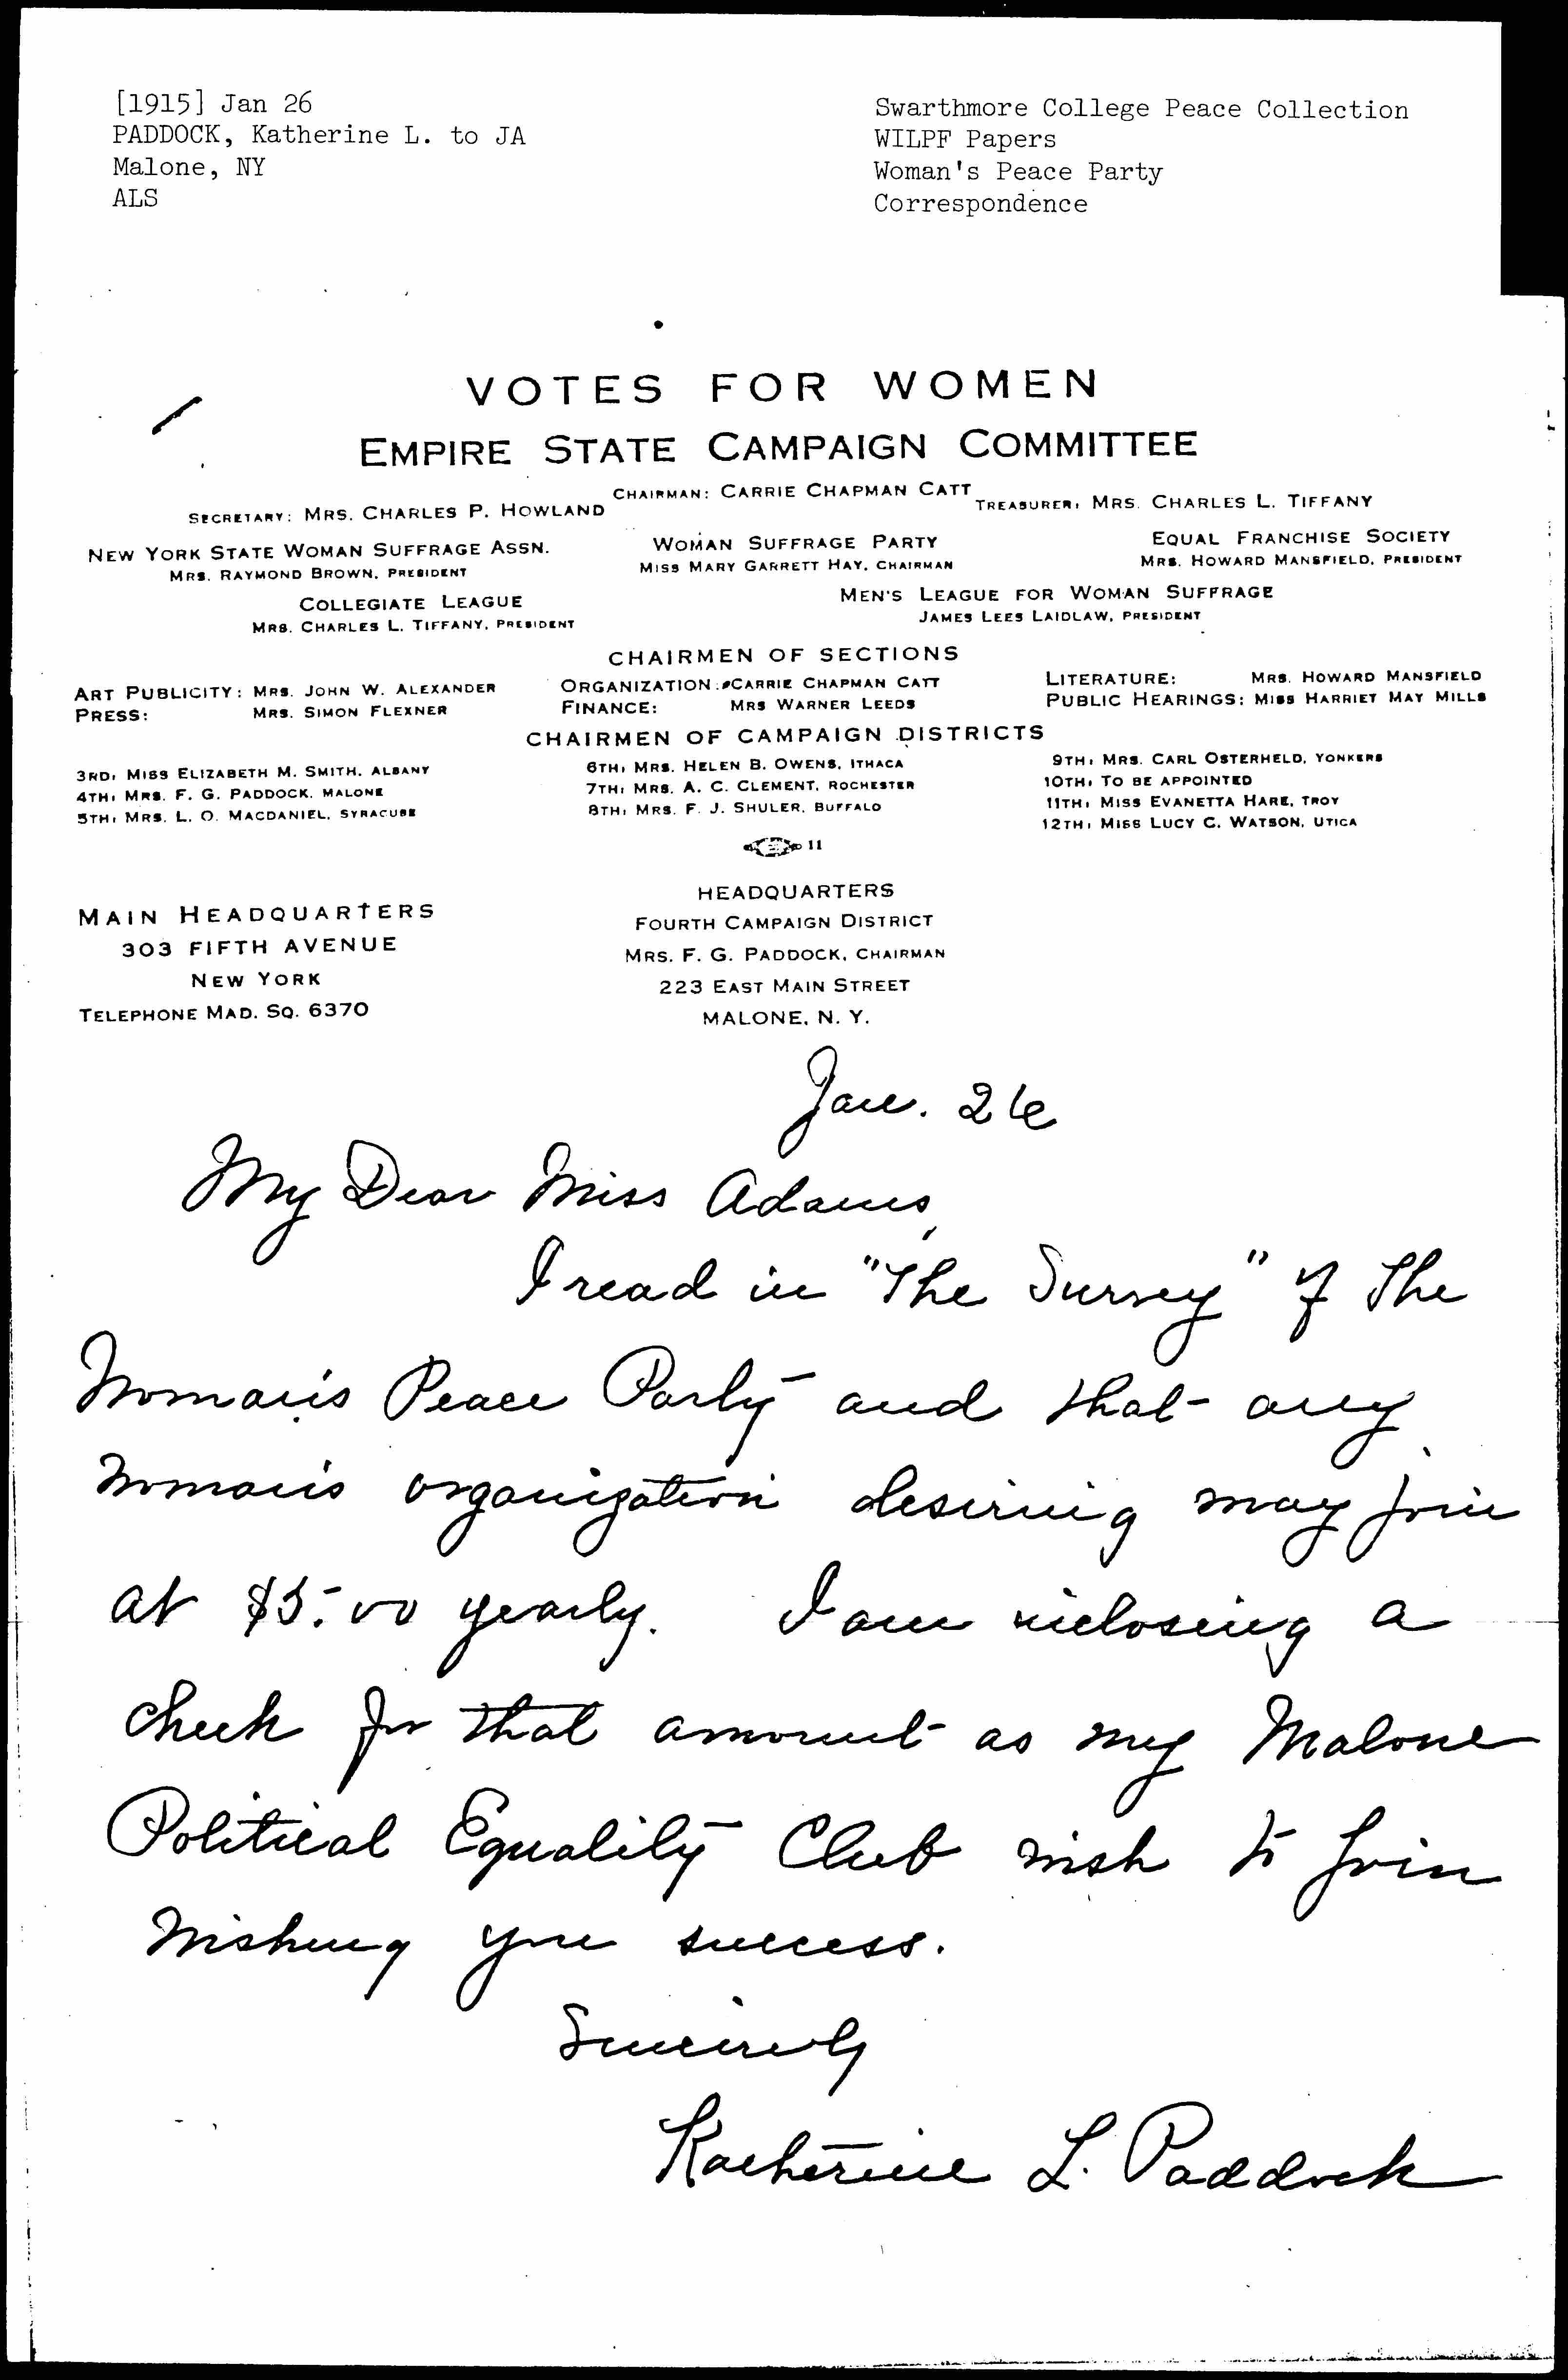 [1915] Jan 26
PADDOCK, Katherine L. to JA
Malone, NY
ALS
Swarthmore College Peace Collection
WILPF Papers
Woman's Peace Party
Correspondence
VOTES FOR WOMEN
EMPIRE STATE CAMPAIGN COMMITTEE
CHAIRMAN: CARRIE CHAPMAN CATT
SECRETARY: MRS. CHARLES P. HOWLAND
TREASURER: MRS. CHARLES L. TIFFANY
NEW YORK STATE WOMAN SUFFRAGE ASSN.
MRS. RAYMOND BROWN, PRESIDENT
WOMAN SUFFRAGE PARTY
MISS MARY GARRETT HAY, CHAIRMAN
EQUAL FRANCHISE SOCIETY
MRS. HOWARD MANSFIELD, PRESIDENT
COLLEGIATE LEAGUE
MRS. CHARLES L. TIFFANY, PRESIDENT
MEN'S LEAGUE FOR WOMAN SUFFRAGE
JAMES LEES LAIDLAW, PRESIDENT
CHAIRMEN OF SECTIONS
ART PUBLICITY: MRS. JOHN W. ALEXANDER
PRESS: MRS. SIMON FLEXNER
ORGANIZATION: CARRIE CHAPMAN CATT
FINANCE: MRS WARNER LEEDS
LITERATURE: MRS. HOWARD MANSFIELD
PUBLIC HEARINGS: MISS HARRIET MAY MILLS
CHAIRMEN OF CAMPAIGN DISTRICTS
3RD: MISS ELIZABETH M. SMITH, ALBANY
4TH: MRS. F. G. PADDOCK, MALONE
5TH: MRS. L. O. MACDANIEL, SYRACUSE
6TH: MRS. HELEN B. OWENS, ITHACA
7TH: MRS. A. C. CLEMENT, ROCHESTER
8TH: MRS. F. J. SHULER, BUFFALO
9TH: MRS. CARL OSTERHELD, YONKERS
10TH: TO BE APPOINTED
11TH: MISS EVANETTA HARE, TROY
12TH: MISS LUCY C. WATSON, UTICA
11
MAIN HEADQUARTERS
303 FIFTH AVENUE
NEW YORK
TELEPHONE MAD. SQ. 6370
HEADQUARTERS
FOURTH CAMPAIGN DISTRICT
MRS. F. G. PADDOCK, CHAIRMAN
223 EAST MAIN STREET
MALONE, N. Y.
Jan. 26
My Dear Miss Adams,
I read in "The Survey" of The
Woman's Peace Party and that any
woman's organization desiring may join
at $5.00 yearly. I am inclosing a
check for that amount as my Malone
Political Equality Club wish to join
Wishing you success.
Sincerely
Katherine L. Paddock